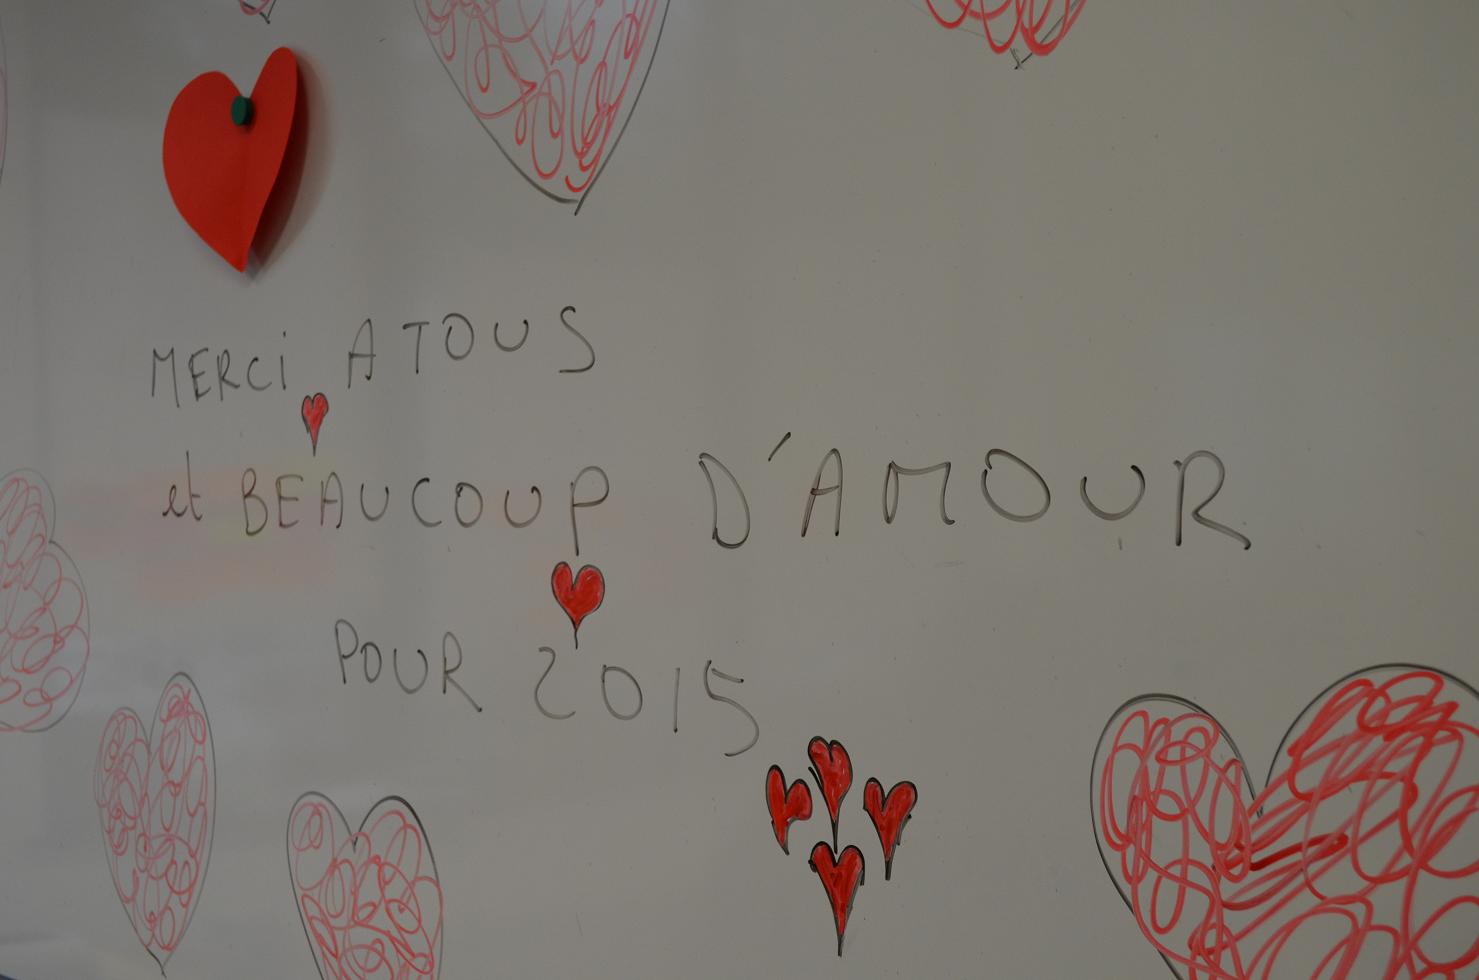 MERCi A TOUS
et BEAUCOUP D'AMOUR
POUR 2015